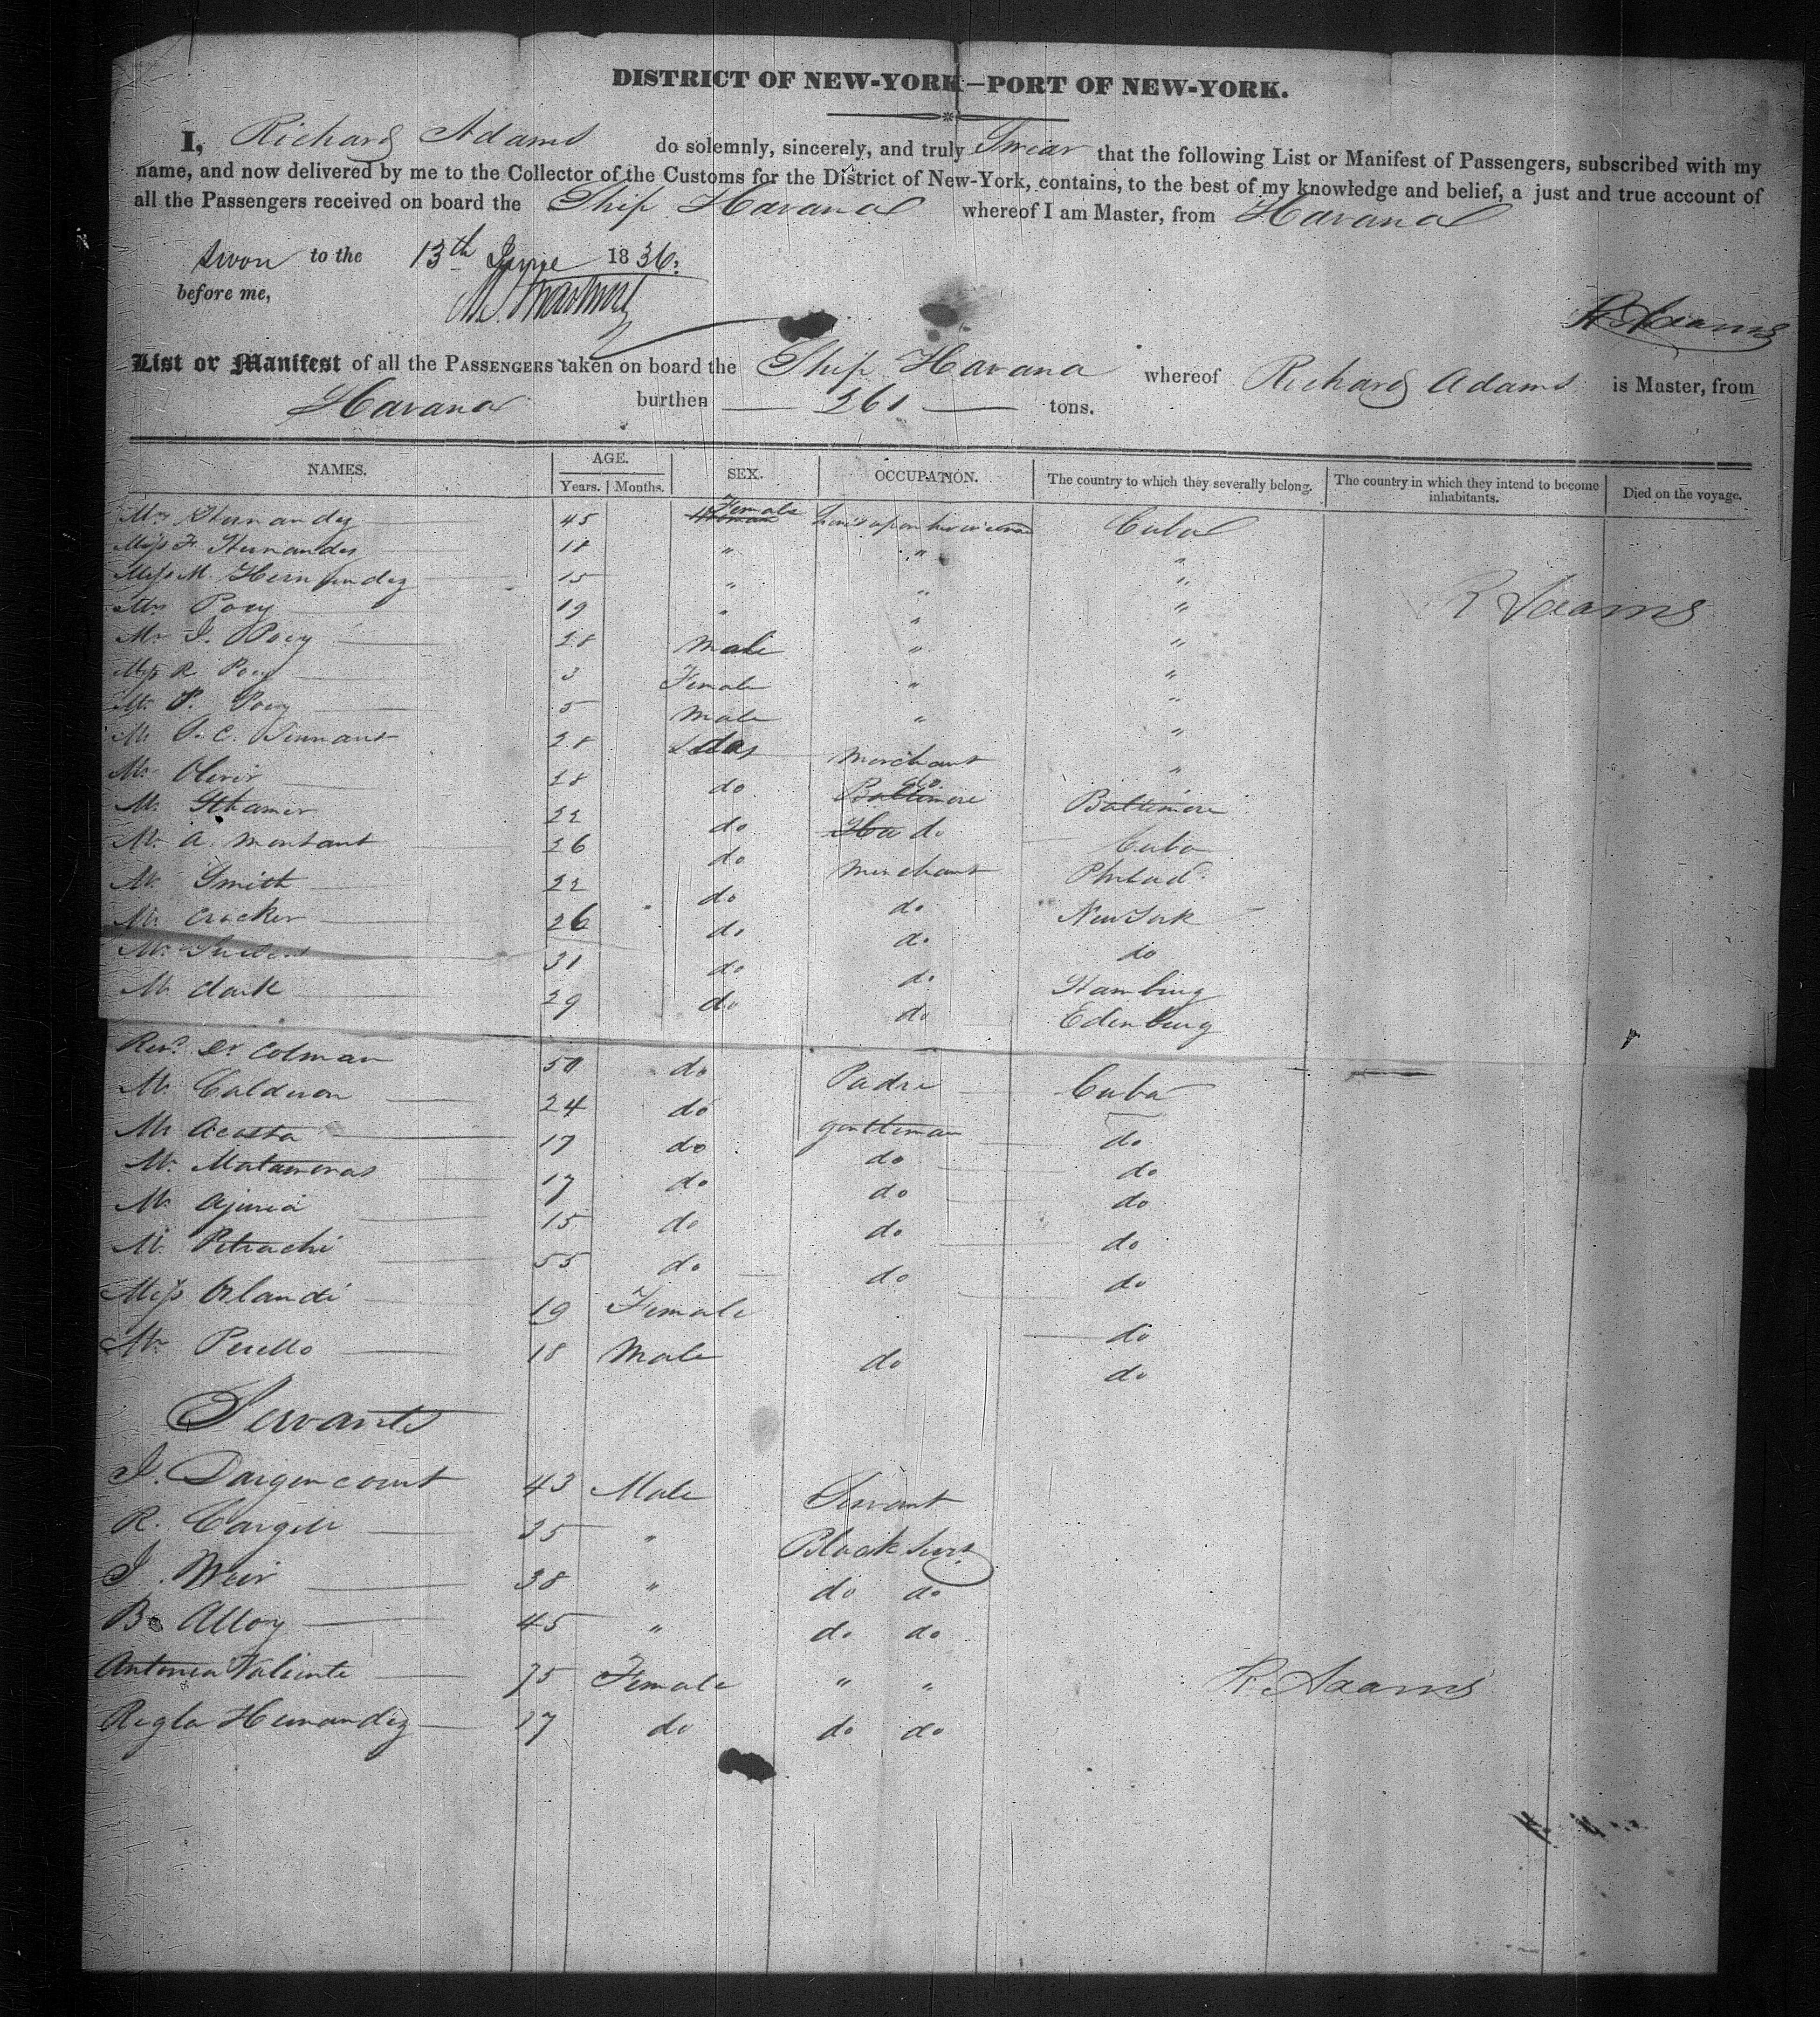 DISTRICT OF NEW-YORK—PORT OF NEW-YORK.
I, Richard Adams do solemnly, sincerely, and truly Swear that the following List or Manifest of Passengers, subscribed with my
name, and now delivered by me to the Collector of the Customs for the District of New-York, contains, to the best of my knowledge and belief, a just and true account of
all the Passengers received on board the Ship Havana whereof I am Master, from Havana
Swon to the 13th June 1836.
before me,
R Adams
List or Manifest of all the PASSENGERS taken on board the Ship Havana whereof Richard Adams is Master, from
Havana burthen 361 tons.
NAMES. AGE. SEX. OCCUPATION. The country to which they severally belong. The country in which they intend to become inhabitants. Died on the voyage.
Years. Months.
Mrs Hernandez 45 Female Cuba
Miss F. Hernandez 18 " " "
Miss M. Hernandez 15 " " "
Mrs Poey 19 " " "
R Adams
Mr J. Poey 28 Male " "
Miss R. Poey 3 Female " "
Mr P. Poey 5 Male " "
Mr P. C. Tennant 28 do Merchant "
Mr Oliver 28 do Baltimore do Baltimore
Mr 22 do do Cuba
Mr A. Montant 26 do Merchant Philad.
Mr Smith 22 do do New York
Mr Crocker 26 do do do
Mr 31 do do Hamburg
Mr Clark 29 do do Edenburg
Revd Dr Colman 50 do Padre Cuba
Mr Calderon 24 do gentleman do
Mr Acosta 17 do do do
Mr Matamoras 17 do do do
Mr Ajuria 15 do do do
Mr Petrachi 55 do do do
Miss Orlandi 19 Female do
Mr Perello 18 Male do do
Servants
J. Dargencourt 43 Male Servant
R. Cargill 35 " Black Servt
J. Weir 38 " do do
B. Alloy 45 " do do
Antonia Valiente 75 Female " "
R. Adams
Regla Hernandez 37 do do do